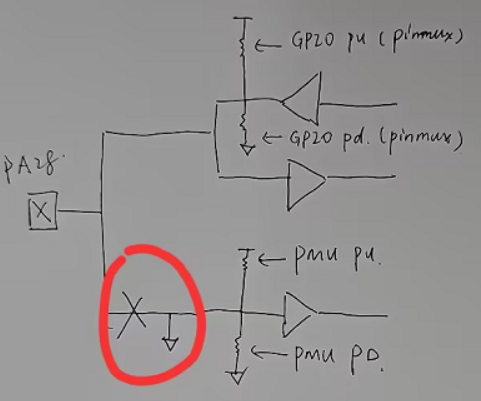 GPIO pu (pinmux)
GPIO pd. (pinmux)
PA28.
X
PMU pu.
PMU PD.